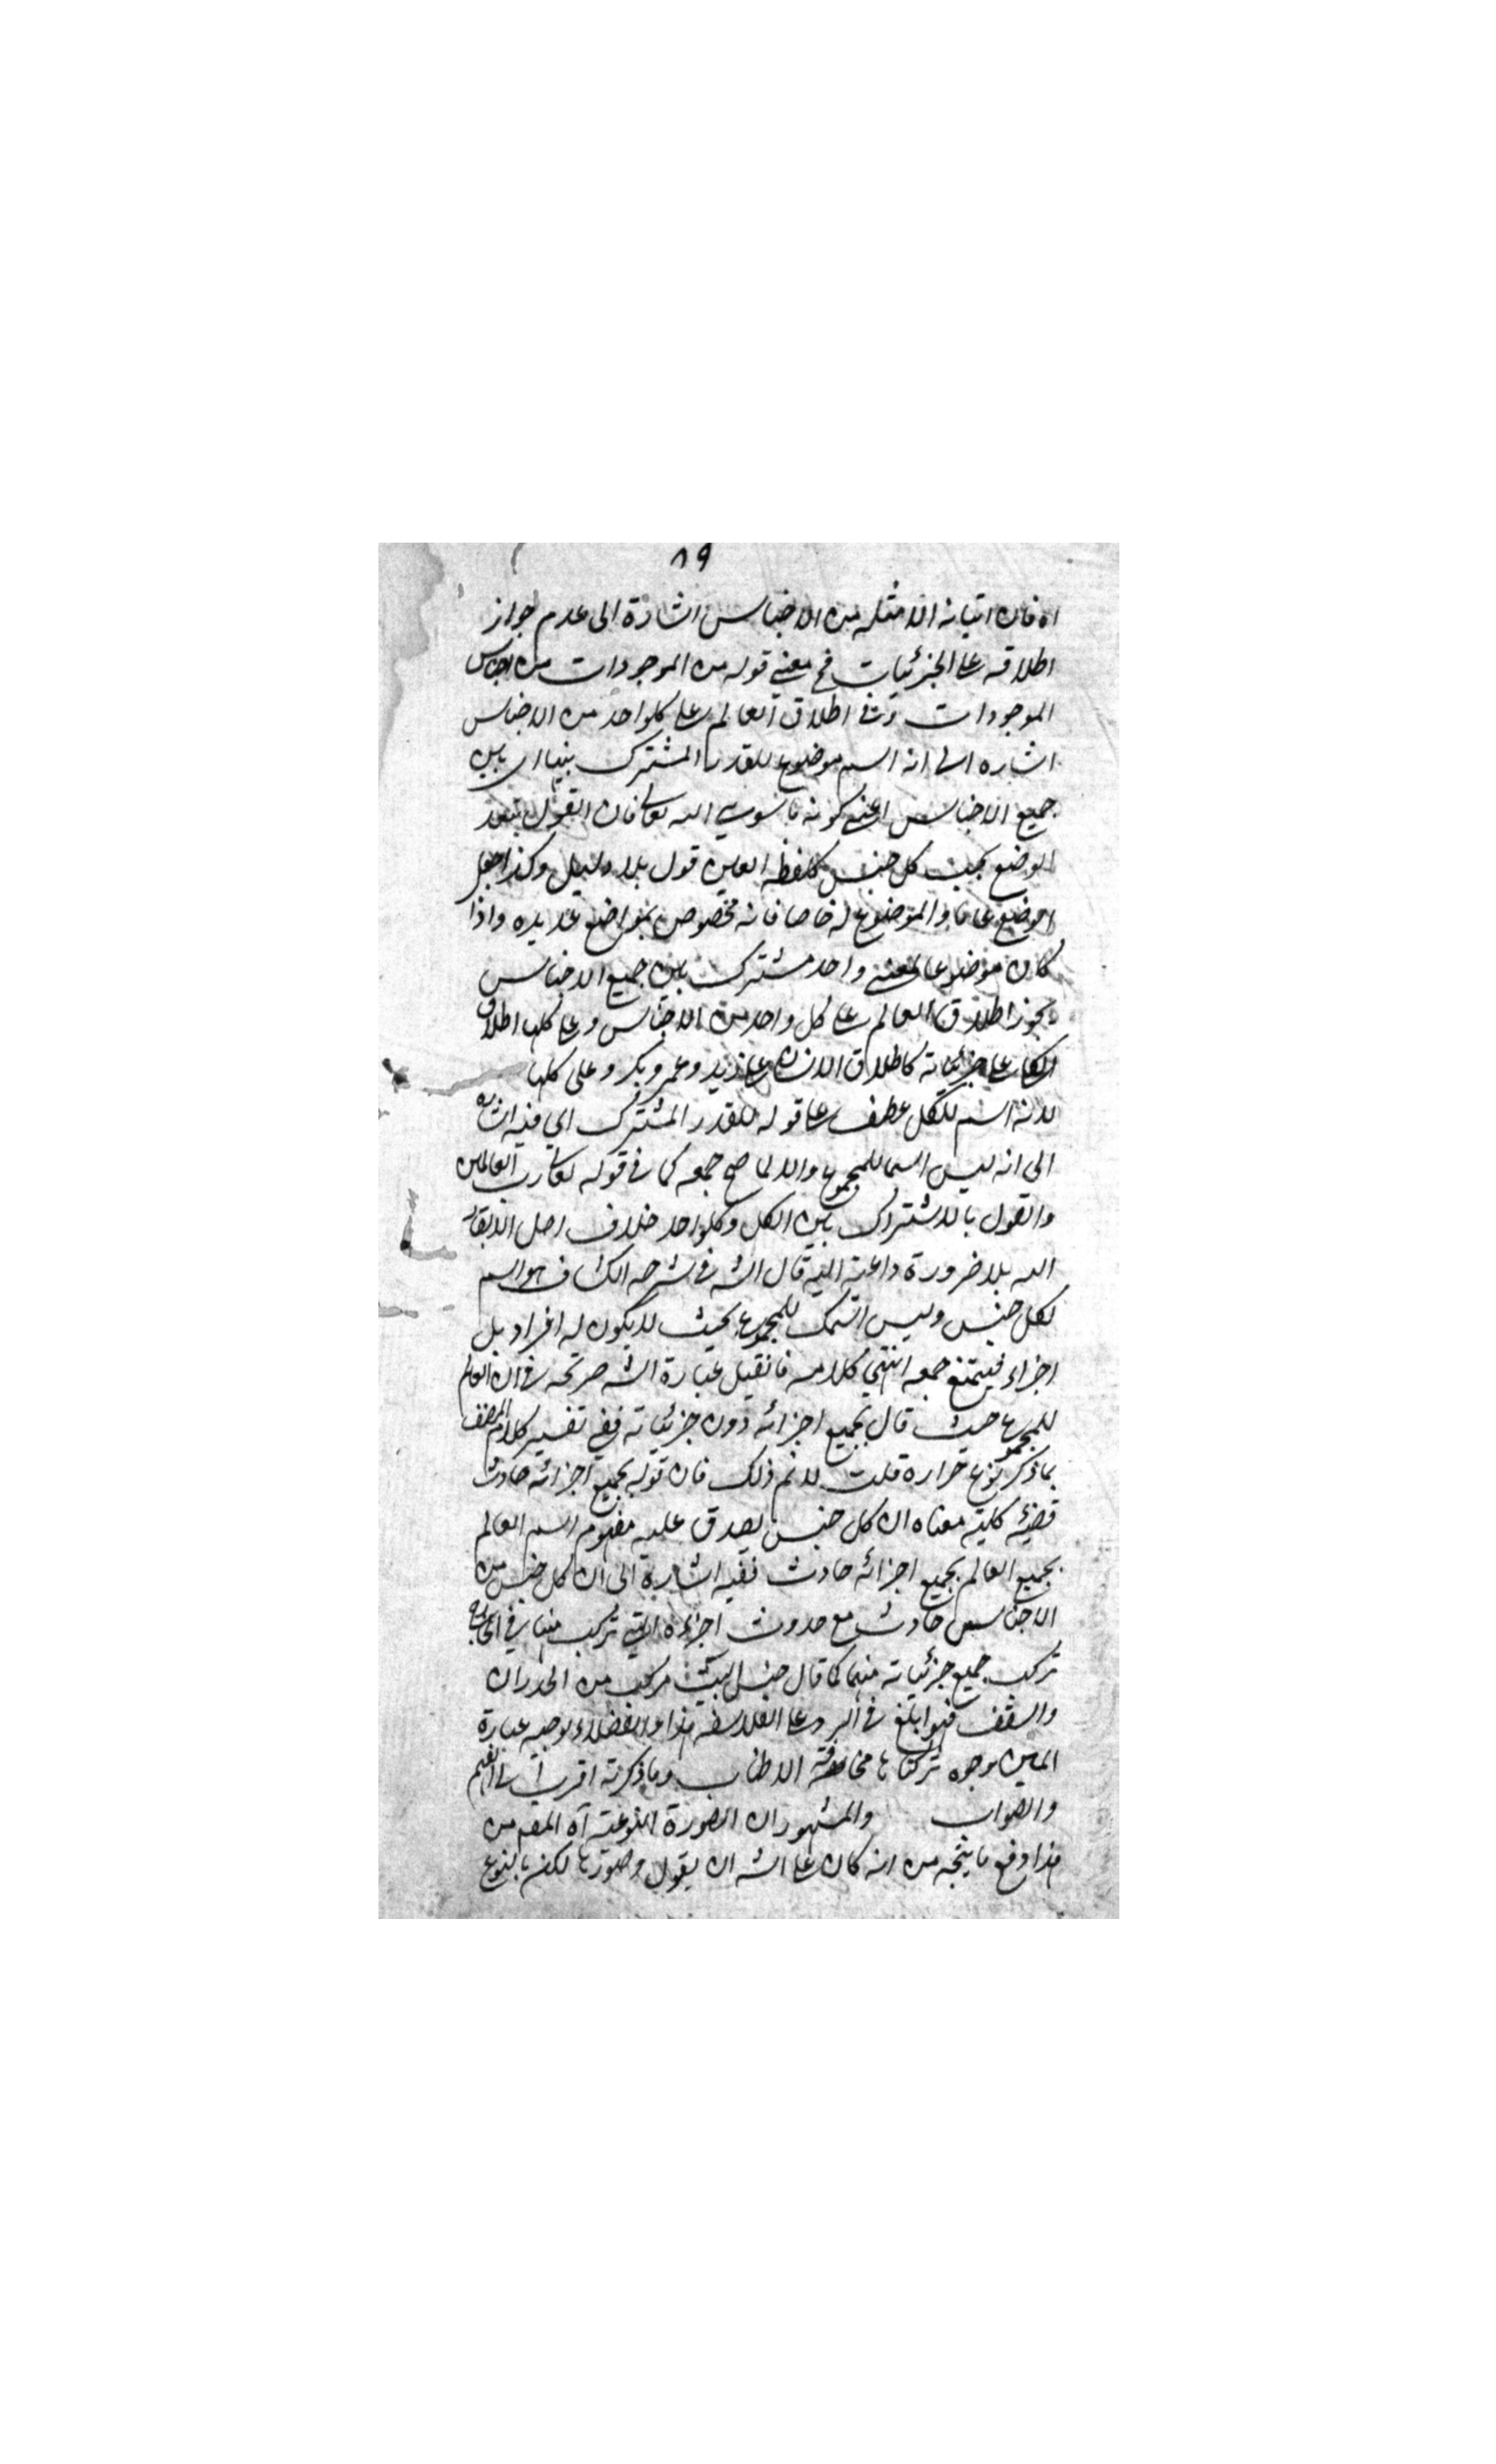 ٨٩
اه فان اتيانه الامثله من الاجناس اشارة الى عدم جواز
اطلاقه على الجزئيات فمعنى قوله من الموجودات من اجناس
الموجودات وفي اطلاق العالم على كلواحد من الاجناس
اشاره الى انه اسم موضوع للقدر المشترك بينها اى بين
جميع الاجناس اعنى كونه ما سوى الله تعالى فان القول بتعدد
الوضع بحسب كل جنس كلفظ العين قول بلا دليل وكذا جعل
الوضع عاما والموضوع له خاصا فانه مخصوص بمواضع عديده واذا
كان موضوعا لمعنى واحد مشترك بين جميع الاجناس
يجوز اطلاق العالم على كل واحد من الاجناس وعلى كلها اطلاق
الكلى على جزئياته كاطلاق الانسان على زيد وعمرو بكر وعلى كلها
لانه اسم للكل عطف على قوله للقدر المشترك اي فيه اشاره
الى انه ليس اسما للمجموع والا لما صح جمعه كما فى قوله تعالى رب العالمين
والقول بالاشتراك بين الكل وكلواحد خلاف اصل لا يقال
اليه بلا ضرورة داعية اليه قال الشه فى شرحه الكشاف هو اسم
لكل جنس وليس اسمك للمجموع بحيث لا يكون له افراد بل
اجزاء فيمتنع جمعه انتهى كلامه فانقيل عبارة الشه صريحه فى ان العالم
للمجموع حيث قال بجميع اجزائه دون جزئياته ففى تفسير كلام المصنف
بما ذكر نوع حزازه قلت لانم ذلك فان قوله بجميع اجزائه حادث
قضيه كلية معناه ان كل جنس يصدق عليه مفهوم اسم العالم
بجميع العالم بجميع اجزائه حادث ففيه اشارة الى ان كل جنس من
الاجناس حادث مع حدوث اجزاءه التى تركب منها فى الخارج
تركب جميع جزئياته منهما كما قال جنس البيت مركب من الجدران
والسقف فهو ابلغ فى الرد على الفلاسفه هذا والفضلاء توجيه عبارة
المتين وجوه تركناها مخافة الاطناب وما ذكرته اقرب الى الفهم
والصواب والمشهور ان الصورة النوعية آه المقص من
هذا دفع ما يتجه من انه كان على الشه ان يقول وصورتها لكن بالنوع